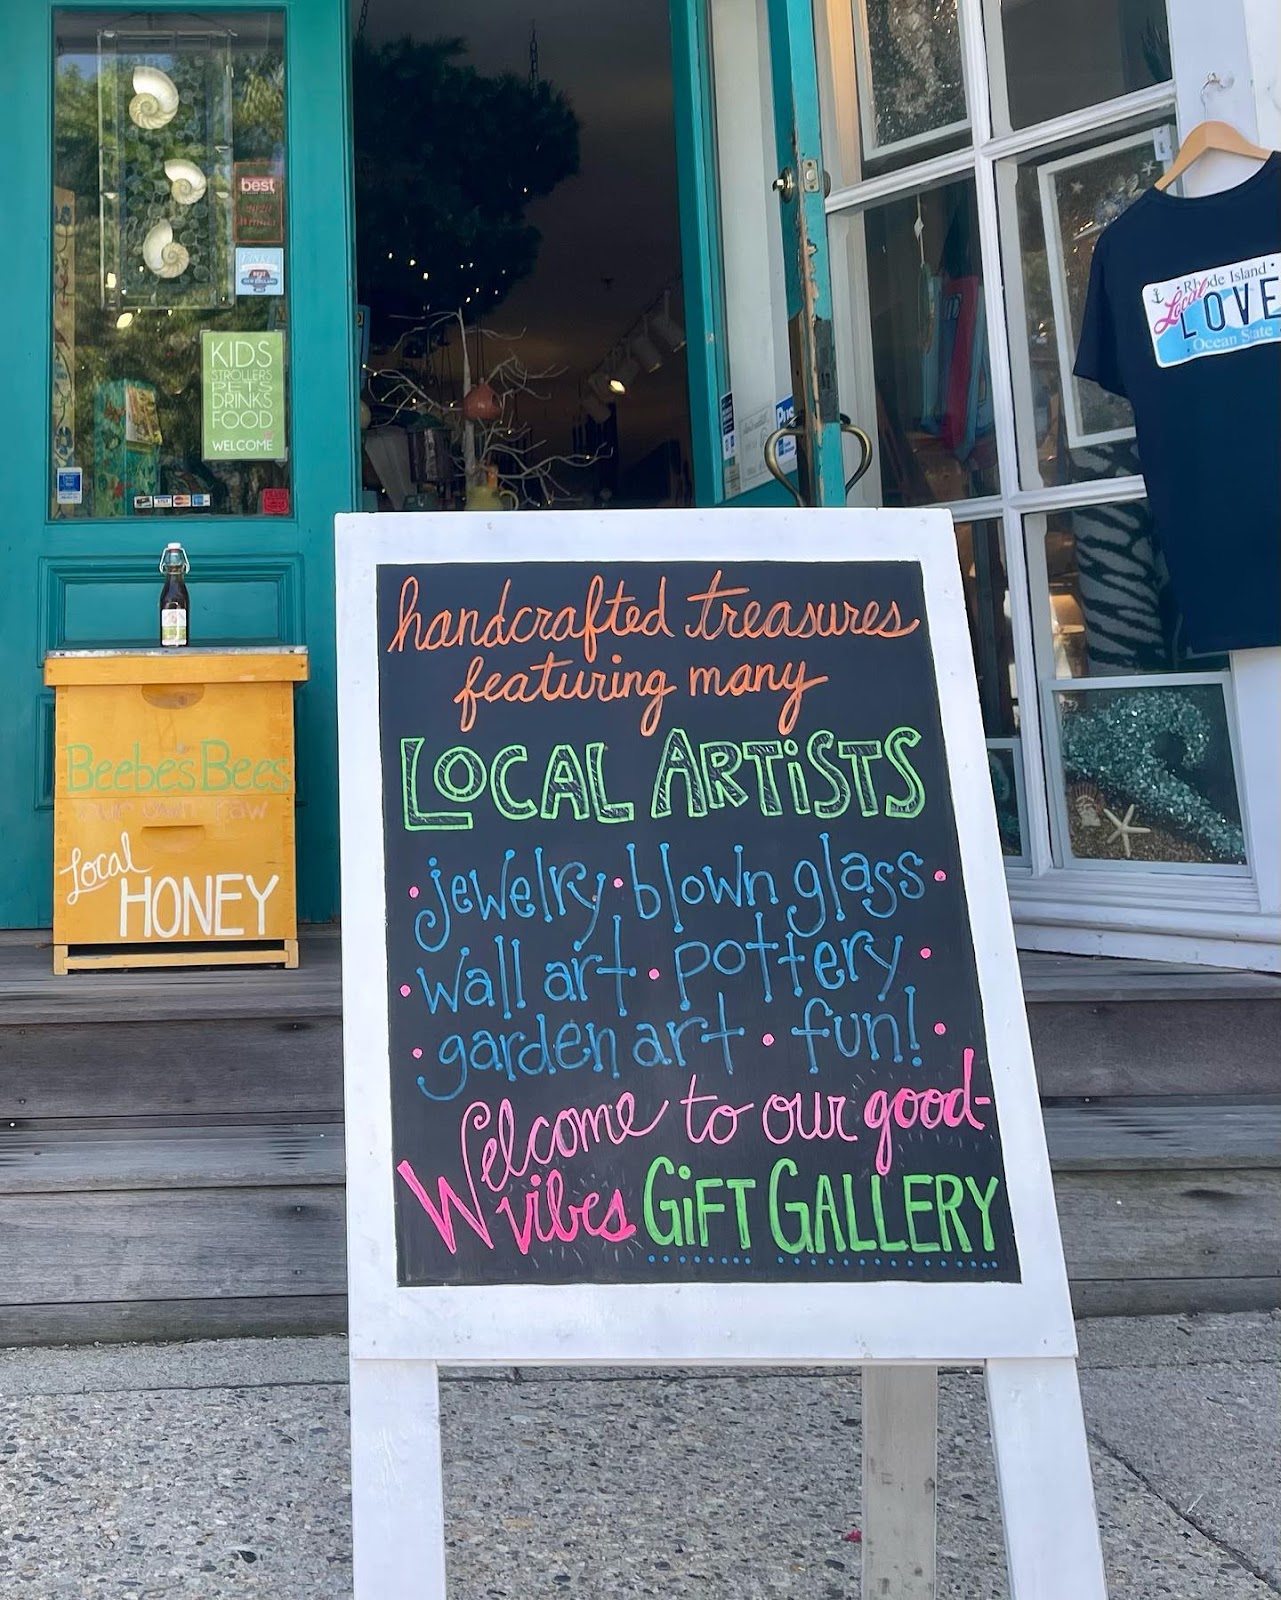 best
2020
Winner
KIDS
STROLLERS
PETS
DRINKS
FOOD
WELCOME
VISA
Rhode Island
Local
LOVE
Ocean State
handcrafted treasures
featuring many
LOCAL ARTiSTS
• jewelry • blown glass •
• wall art • pottery •
• garden art • fun! •
Welcome to our good-
vibes GiFT GALLERY
Beebe's Bees
our own raw
Local
HONEY